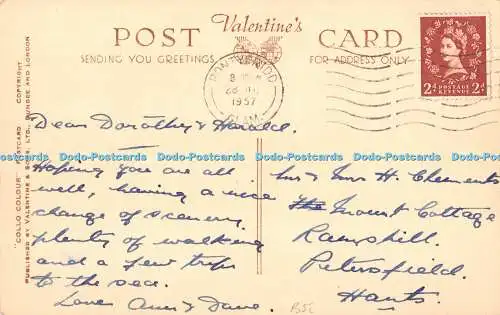 Valentine's
POST CARD
SENDING YOU GREETINGS FOR ADDRESS ONLY
PONTYPRIDD
1957
GLAM
2D POSTAGE REVENUE 2D
"COLLO COLOUR" POSTCARD COPYRIGHT
PUBLISHED BY VALENTINE & SONS, LTD., DUNDEE AND LONDON
Dear Dorothy & Harold.
Hoping you are all
well, having a nice
change of scenery
plenty of walking
and a few trips
to the sea.
Love Ann & Dave.
Mr & Mrs H. Clements
Mount Cottage
Ramshill.
Petersfield.
Hants.
Dodo-Postcards Dodo-Postcards Dodo-Postcards Dodo-Postcards Dodo-Postcards